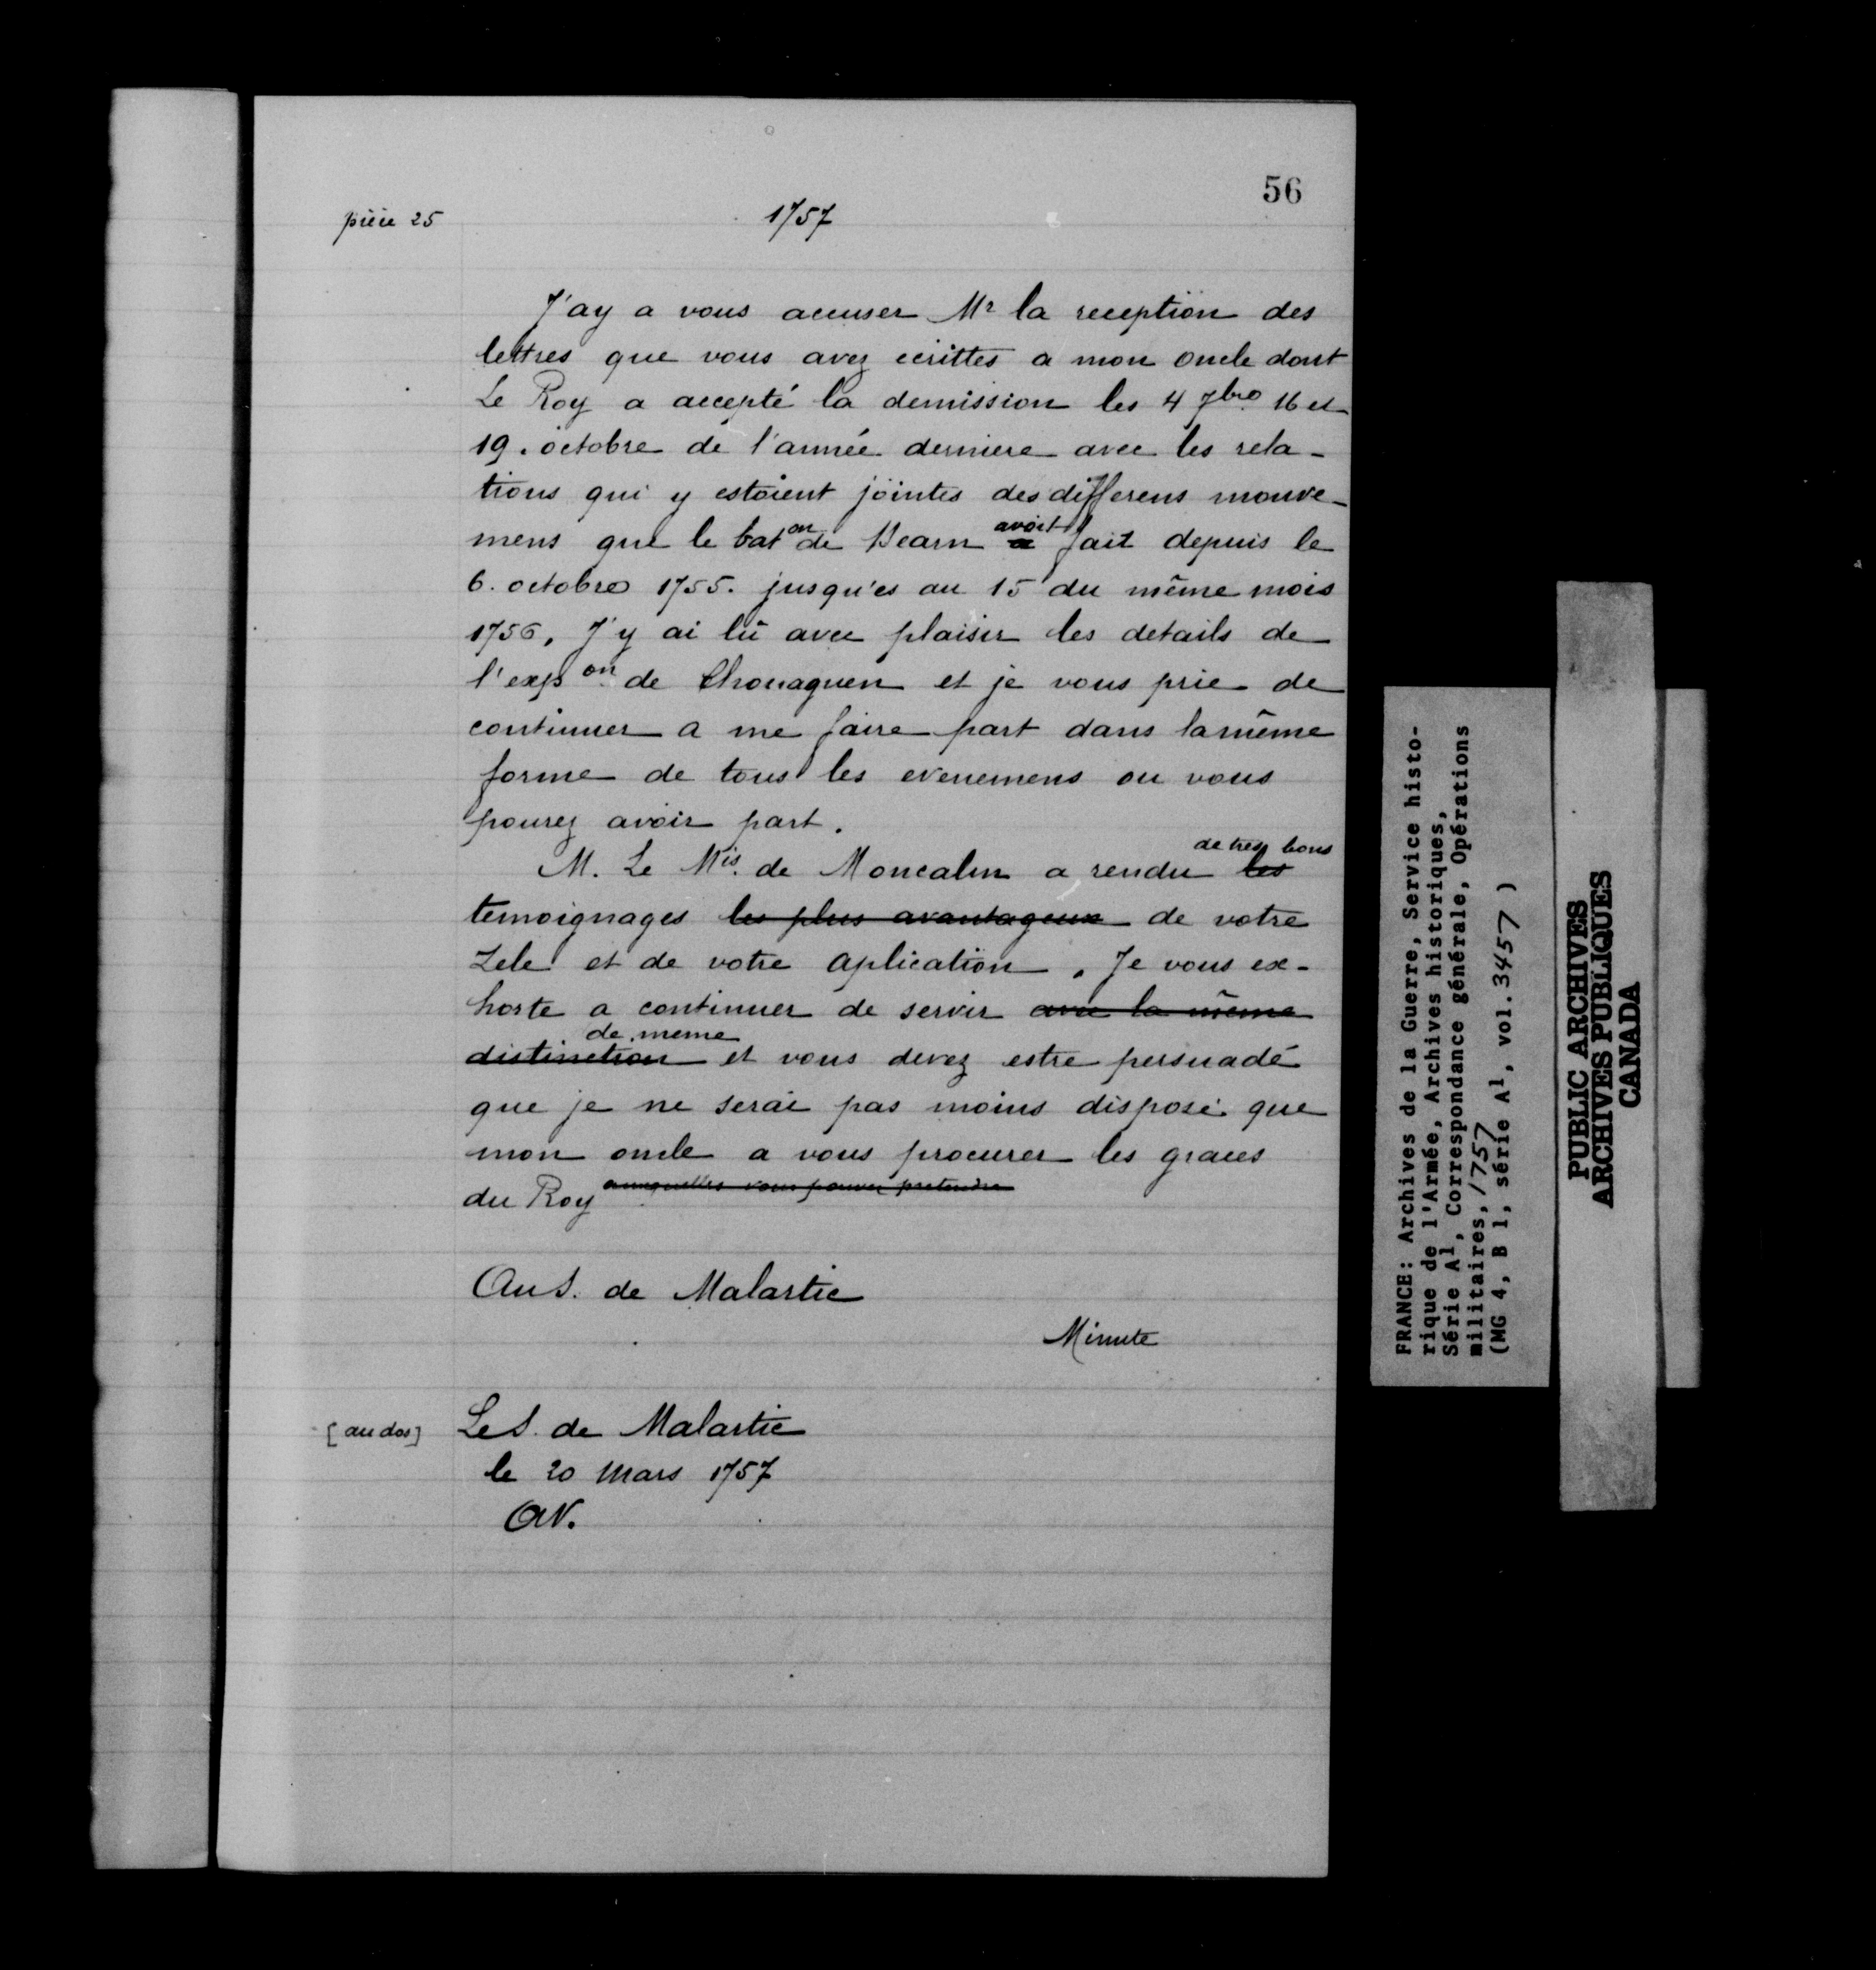 56
pièce 25
1757
J'ay a vous accuser Mr la reception des
lettres que vous avez ecrittes a mon oncle dont
Le Roy a accepté la demission les 4 7bre 16 et
19. octobre de l'année derniere avec les rela-
tions qui y estoient jointes des differens mouve-
mens que le baton de Bearn a avoit fait depuis le
6. octobre 1755. jusqu'es au 15 du même mois
1756, J'y ai lû avec plaisir les details de
l'expon de Chouaguen et je vous prie de
continuer a me faire part dans la même
forme de tous les evenemens ou vous
pourez avoir part.
M. Le Mis. de Moncalm a rendu les de tres bons
temoignages les plus avantageux de votre
Zele et de votre aplication. Je vous ex-
horte a continuer de servir avec la même
distinction de meme et vous devez estre persuadé
que je ne serai pas moins disposé que
mon oncle a vous procurer les graces
du Roy auxquelles vous pouvez pretendre
Au S. de Malartic
Minute
[au dos]
Le S. de Malartic
le 20 Mars 1757
AN.
FRANCE: Archives de la Guerre, Service histo-
rique de l'Armée, Archives historiques,
Série A1, Correspondance générale, Opérations
militaires, 1757
(MG 4, B 1, série A1, vol. 3457)
PUBLIC ARCHIVES
ARCHIVES PUBLIQUES
CANADA